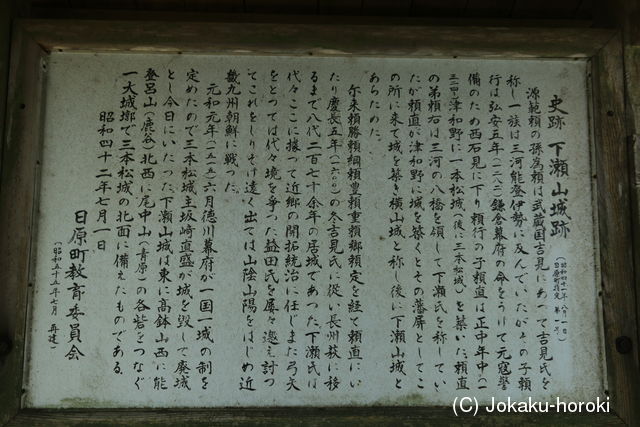 史跡 下瀬山城跡
(昭和四十一年八月一日
日原町指定 第一号)
源範頼の孫為頼は武蔵国吉見にあって吉見氏を
称し一族は三河能登伊勢に及んでいたがその子頼
行は弘安五年(一二八二)鎌倉幕府の命をうけて元寇警
備のため西石見に下り頼行の子頼直は正中年中(一
三二四)津和野に一本松城(後に三本松城)を築いた頼直
の弟頼右は三河の八橋を領して下瀬氏を称してい
たが頼直が津和野に城を築くとその藩屏としてこ
の所に来て城を築き横山城と称し、後に下瀬山城と
あらためた。
尓来頼勝頼綱頼豊頼重頼郷頼定を経て頼直にい
たり慶長五年(一六〇〇)の冬吉見氏に従い長州萩に移
るまで八代二百七十余年の居城であった下瀬氏は
代々ここに據って近郷の開拓統治に任じまた弓矢
をとっては代々境を争った益田氏を屡々邀え討つ
てこれをしりぞけ遠く出ては山陰山陽をはじめ近
畿九州朝鮮に戦った。
元和元年(一六一五)六月徳川幕府が一国一城の制を
定めたので三本松城主坂崎直盛が城を毀して廃城
とし今日にいたった下瀬山城は東に高鉢山西に能
登呂山(鹿谷)北西に尾中山(青原)の各砦をつなぐ
一大城塁で三本松城の北面に備えたものである。
昭和四十二年七月一日
日原町教育委員会
(昭和五十五年七月 再建)
(C) Jokaku-horoki